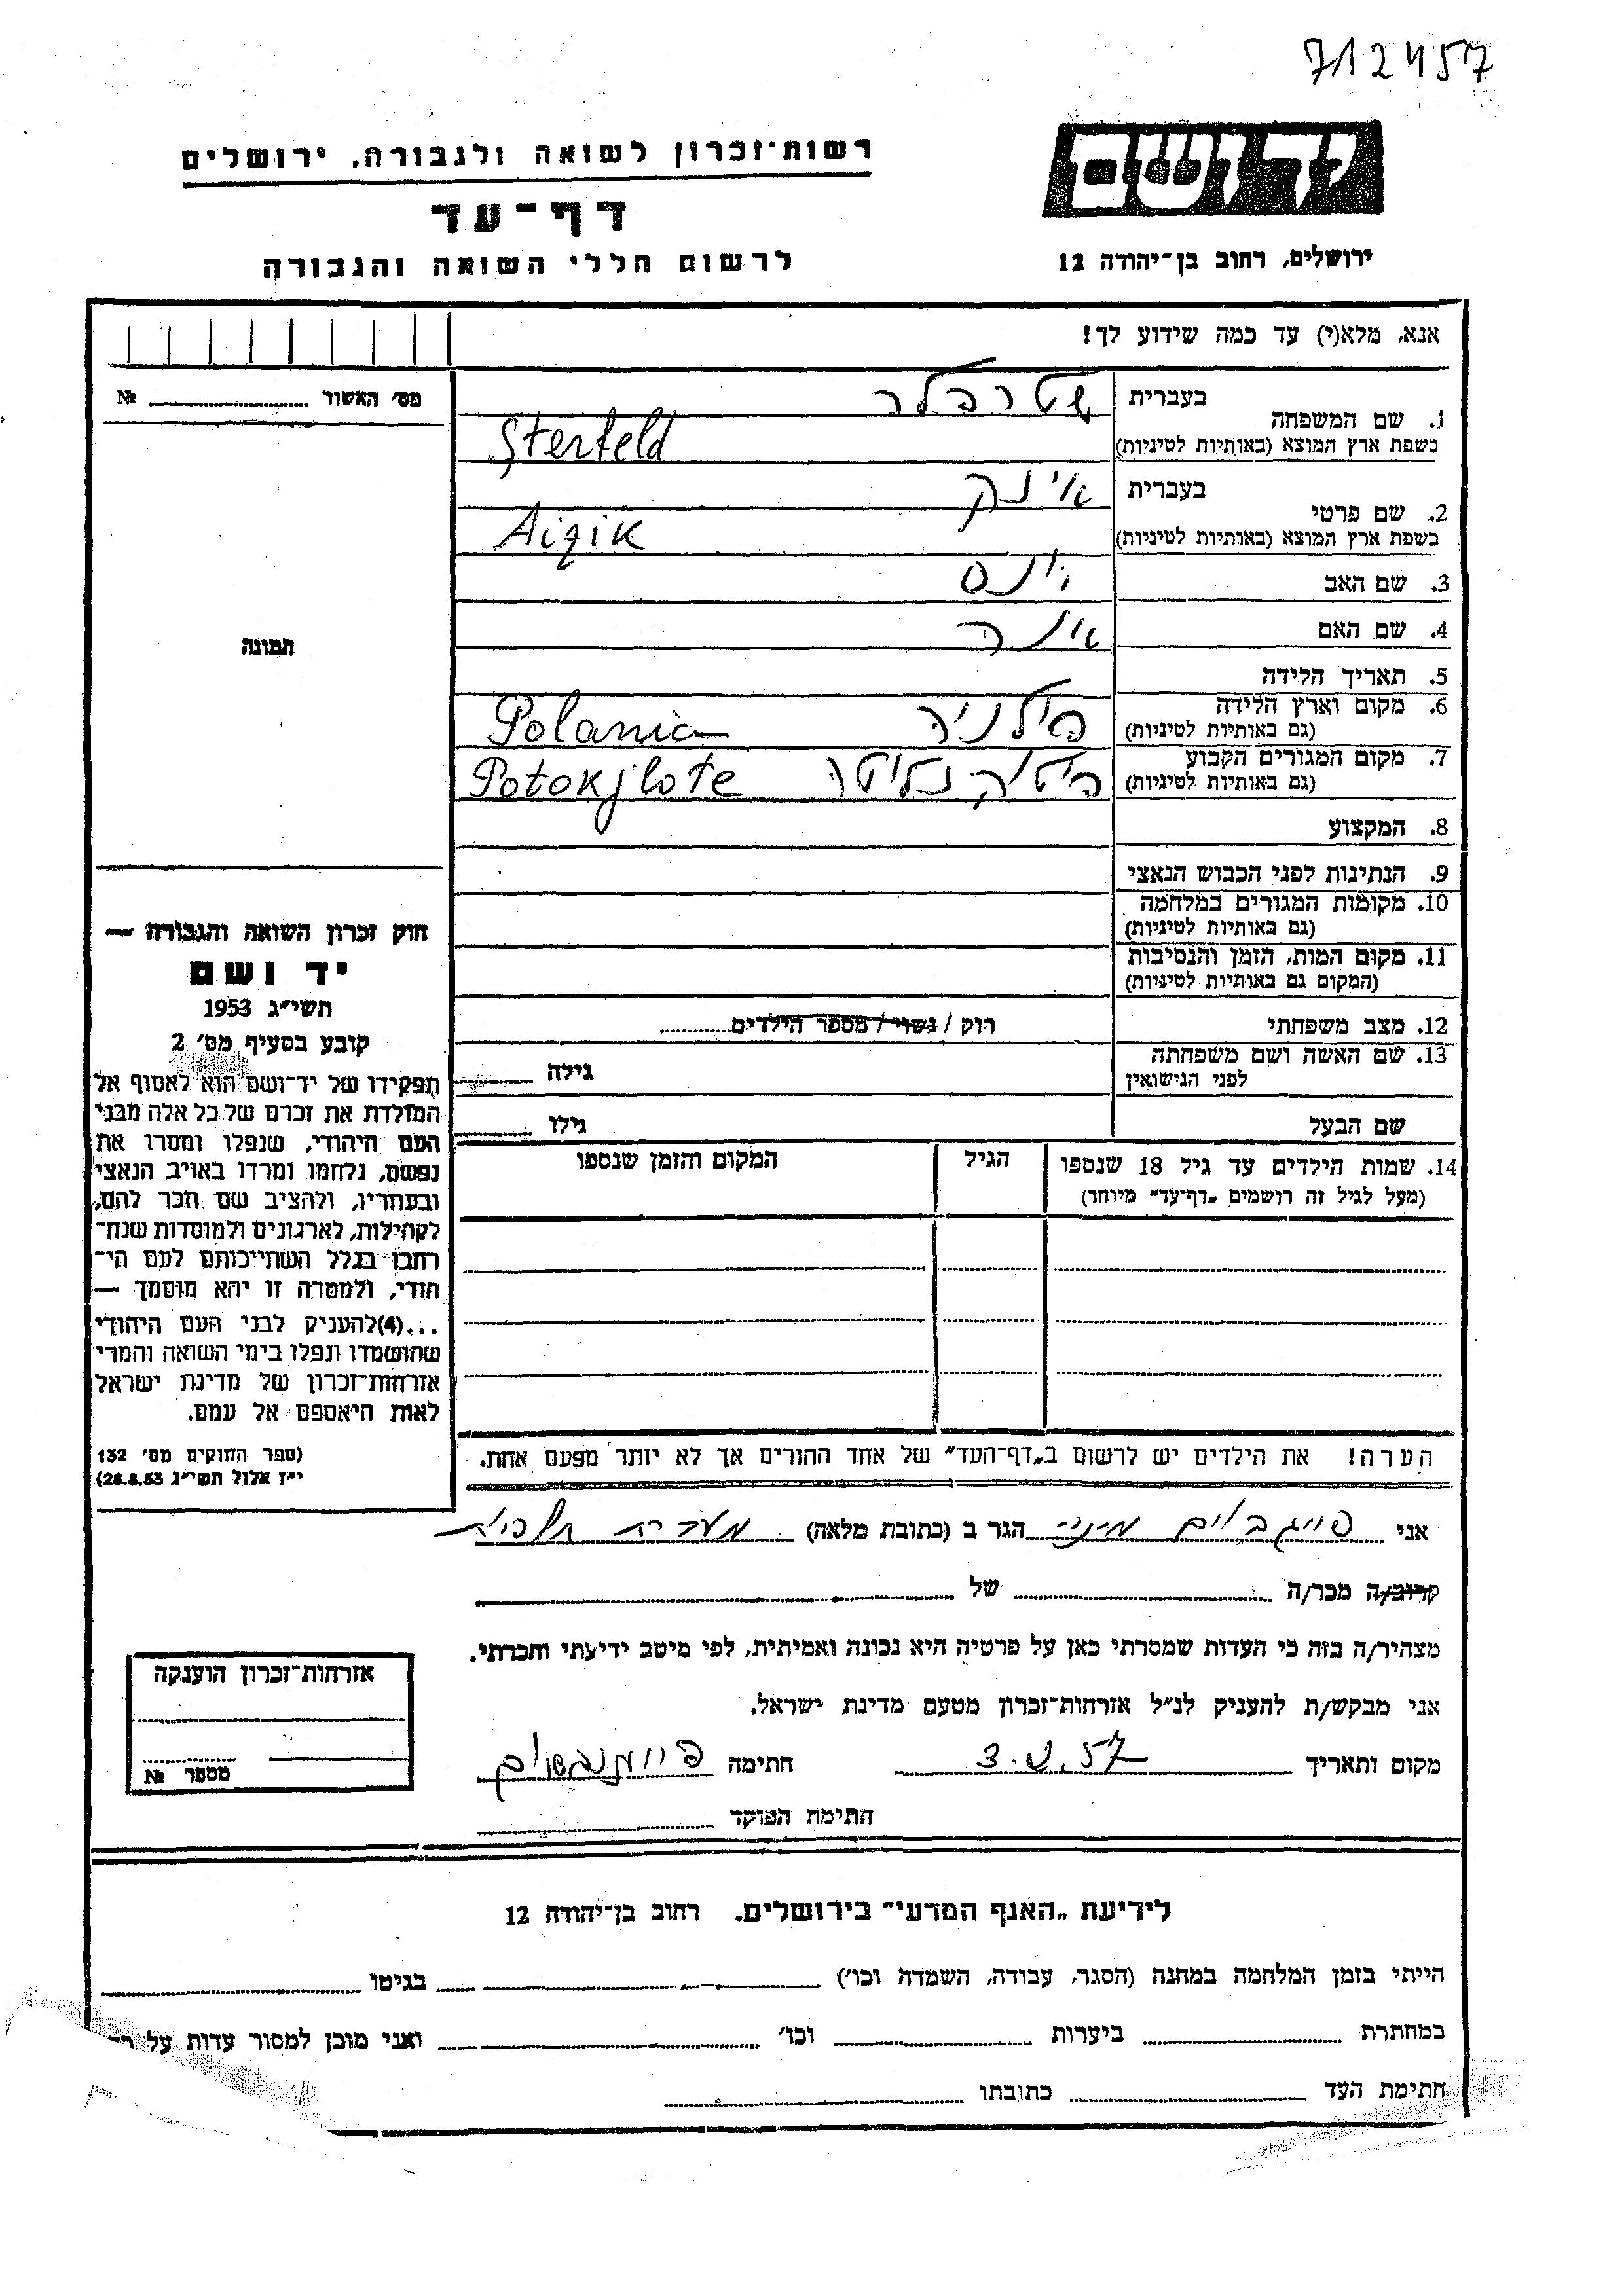 712457
רשות־זכרון לשואה ולגבורה, ירושלים
יד ושם
דף־עד
לרשום חללי השואה והגבורה
ירושלים, רחוב בן־יהודה 12
אנא, מלא(י) עד כמה שידוע לך!
מס׳ האשור № ........
1. שם המשפחה
בעברית
בשפת ארץ המוצא (באותיות לטיניות) Sterfeld
2. שם פרטי
בעברית
בשפת ארץ המוצא (באותיות לטיניות) Aizik
3. שם האב
4. שם האם
5. תאריך הלידה
6. מקום וארץ הלידה
(גם באותיות לטיניות)
פולניה Polania
7. מקום המגורים הקבוע
(גם באותיות לטיניות)
Potokjlote
8. המקצוע
9. הנתינות לפני הכבוש הנאצי
10. מקומות המגורים במלחמה
(גם באותיות לטיניות)
11. מקום המות, הזמן והנסיבות
(המקום גם באותיות לטיניות)
12. מצב משפחתי רוק / נשוי / מספר הילדים........
13. שם האשה ושם משפחתה
לפני הנישואין
גילה ........
שם הבעל גילו ........
14. שמות הילדים עד גיל 18 שנספו
(מעל לגיל זה רושמים „דף־עד” מיוחד)
הגיל
המקום והזמן שנספו
הערה! את הילדים יש לרשום ב„דף־העד” של אחד ההורים אך לא יותר מפעם אחת.
תמונה
חוק זכרון השואה והגבורה —
יד ושם
תשי״ג 1953
קובע בסעיף מס׳ 2
תפקידו של יד־ושם הוא לאסוף אל
המולדת את זכרם של כל אלה מבני
העם היהודי, שנפלו ומסרו את
נפשם, נלחמו ומרדו באויב הנאצי
ובעוזריו, ולהציב שם וזכר להם,
לקהילות, לארגונים ולמוסדות שנח־
רבו בגלל השתייכותם לעם הי־
הודי, ולמטרה זו יהא מוסמך —
...(4)להעניק לבני העם היהודי
שהושמדו ונפלו בימי השואה והמרי
אזרחות־זכרון של מדינת ישראל
לאות היאספם אל עמם.
(ספר החוקים מס׳ 132
י״ז אלול תשי״ג 28.8.53)
אני ........ הגר ב (כתובת מלאה) מעברת תלפיות
קרוב/ה מכר/ה ........ של ........
מצהיר/ה בזה כי העדות שמסרתי כאן על פרטיה היא נכונה ואמיתית, לפי מיטב ידיעתי והכרתי.
אני מבקש/ת להעניק לנ״ל אזרחות־זכרון מטעם מדינת ישראל.
מקום ותאריך חתימה
חתימת הפוקד ........
אזרחות־זכרון הוענקה
מספר №
לידיעת „האגף המדעי” בירושלים. רחוב בן־יהודה 12
הייתי בזמן המלחמה במחנה (הסגר, עבודה, השמדה וכו׳) ........ בגיטו ........
במחתרת ........ ביערות ........ וכו׳ ........ ואני מוכן למסור עדות על
חתימת העד ........ כתובתו ........